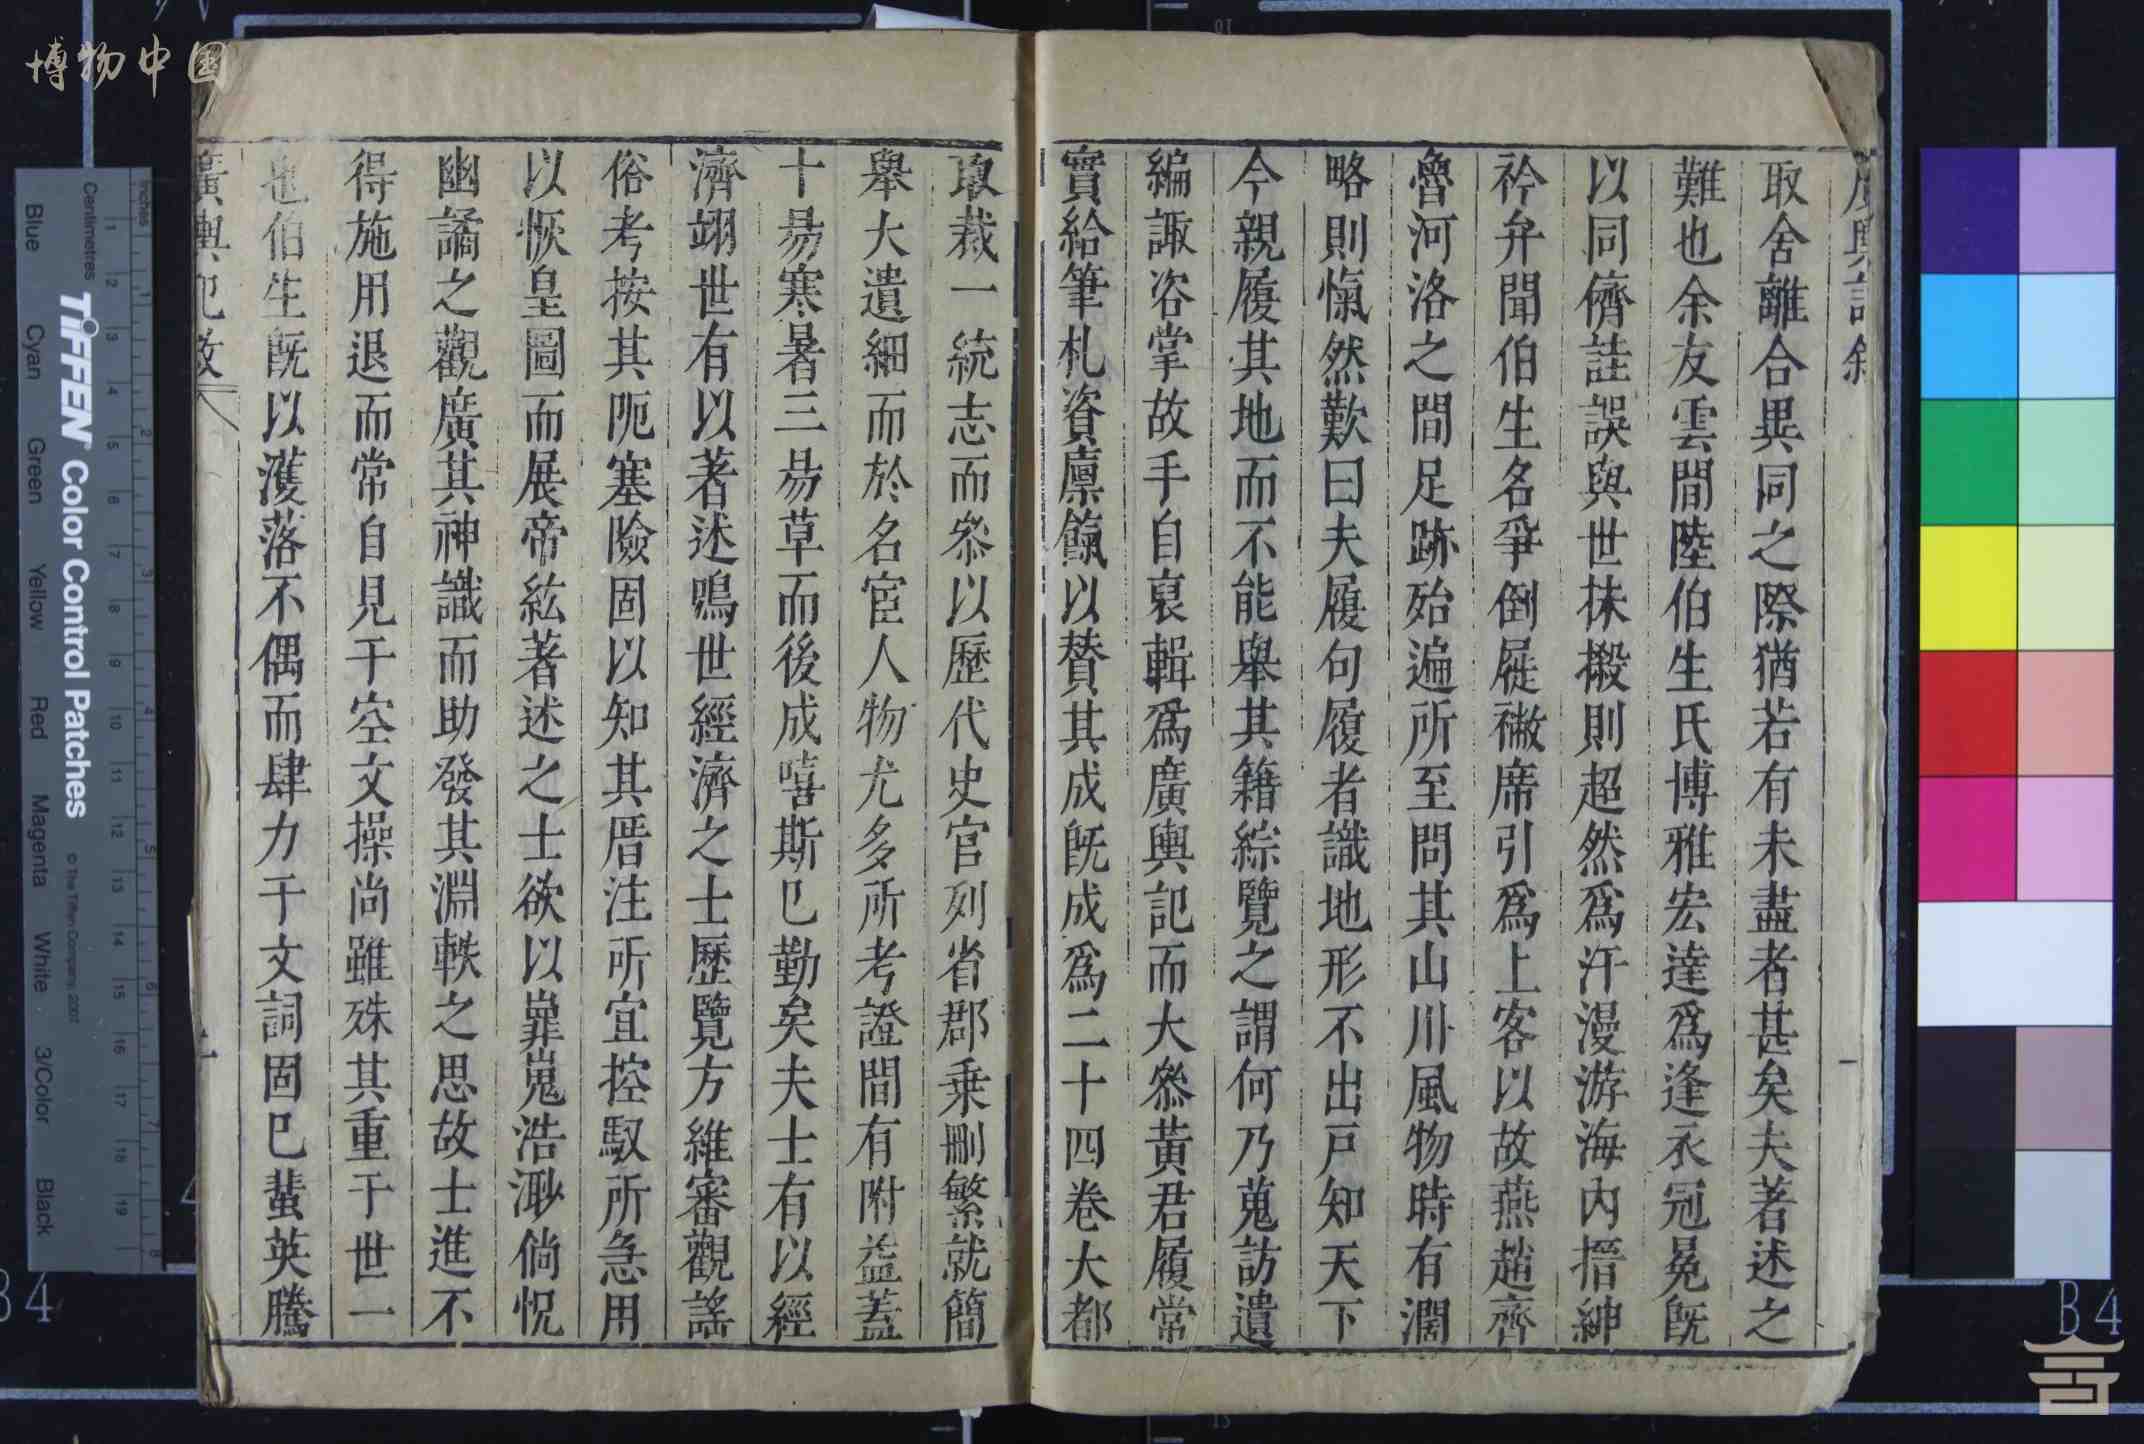 取舍離合異同之際猶若有未盡者甚矣夫著述之
難也余友雲間陸伯生氏博雅宏達爲逢衣冠冕旣
以同儕詿誤與世抹摋則超然爲汗漫游海內搢紳
衿弁聞伯生名爭倒屣襒席引爲上客以故燕趙齊
魯河洛之間足跡殆遍所至問其山川風物時有濶
略則愾然歎曰夫履句履者識地形不出戸知天下
今親履其地而不能舉其籍綜覽之謂何乃蒐訪遺
編諏咨掌故手自裒輯爲廣輿記而大叅黃君履常
實給筆札資廪餼以賛其成旣成爲二十四卷大都
取裁一統志而叅以歷代史官列省郡乗刪繁就簡
舉大遺細而於名宦人物尤多所考證間有附益蓋
十昜寒暑三昜草而後成嘻斯巳勤矣夫士有以經
濟翊世有以著述鳴世經濟之士歷覽方維審觀謠
俗考按其阨塞險固以知其厝注所宜控馭所急用
以恢皇圖而展帝紘著述之士欲以嶵嵬浩渺倘怳
幽譎之觀廣其神識而助發其淵軼之思故士進不
得施用退而常自見于空文操尚雖殊其重于世一
也伯生旣以濩落不偶而肆力于文詞固巳蜚英騰
廣輿記敘
廣輿記敘
博物中国
TIFFEN Color Control Patches
© The Tiffen Company, 2007
Centimetres
Inches
Blue
Cyan
Green
Yellow
Red
Magenta
White
3/Color
Black
B4
B4